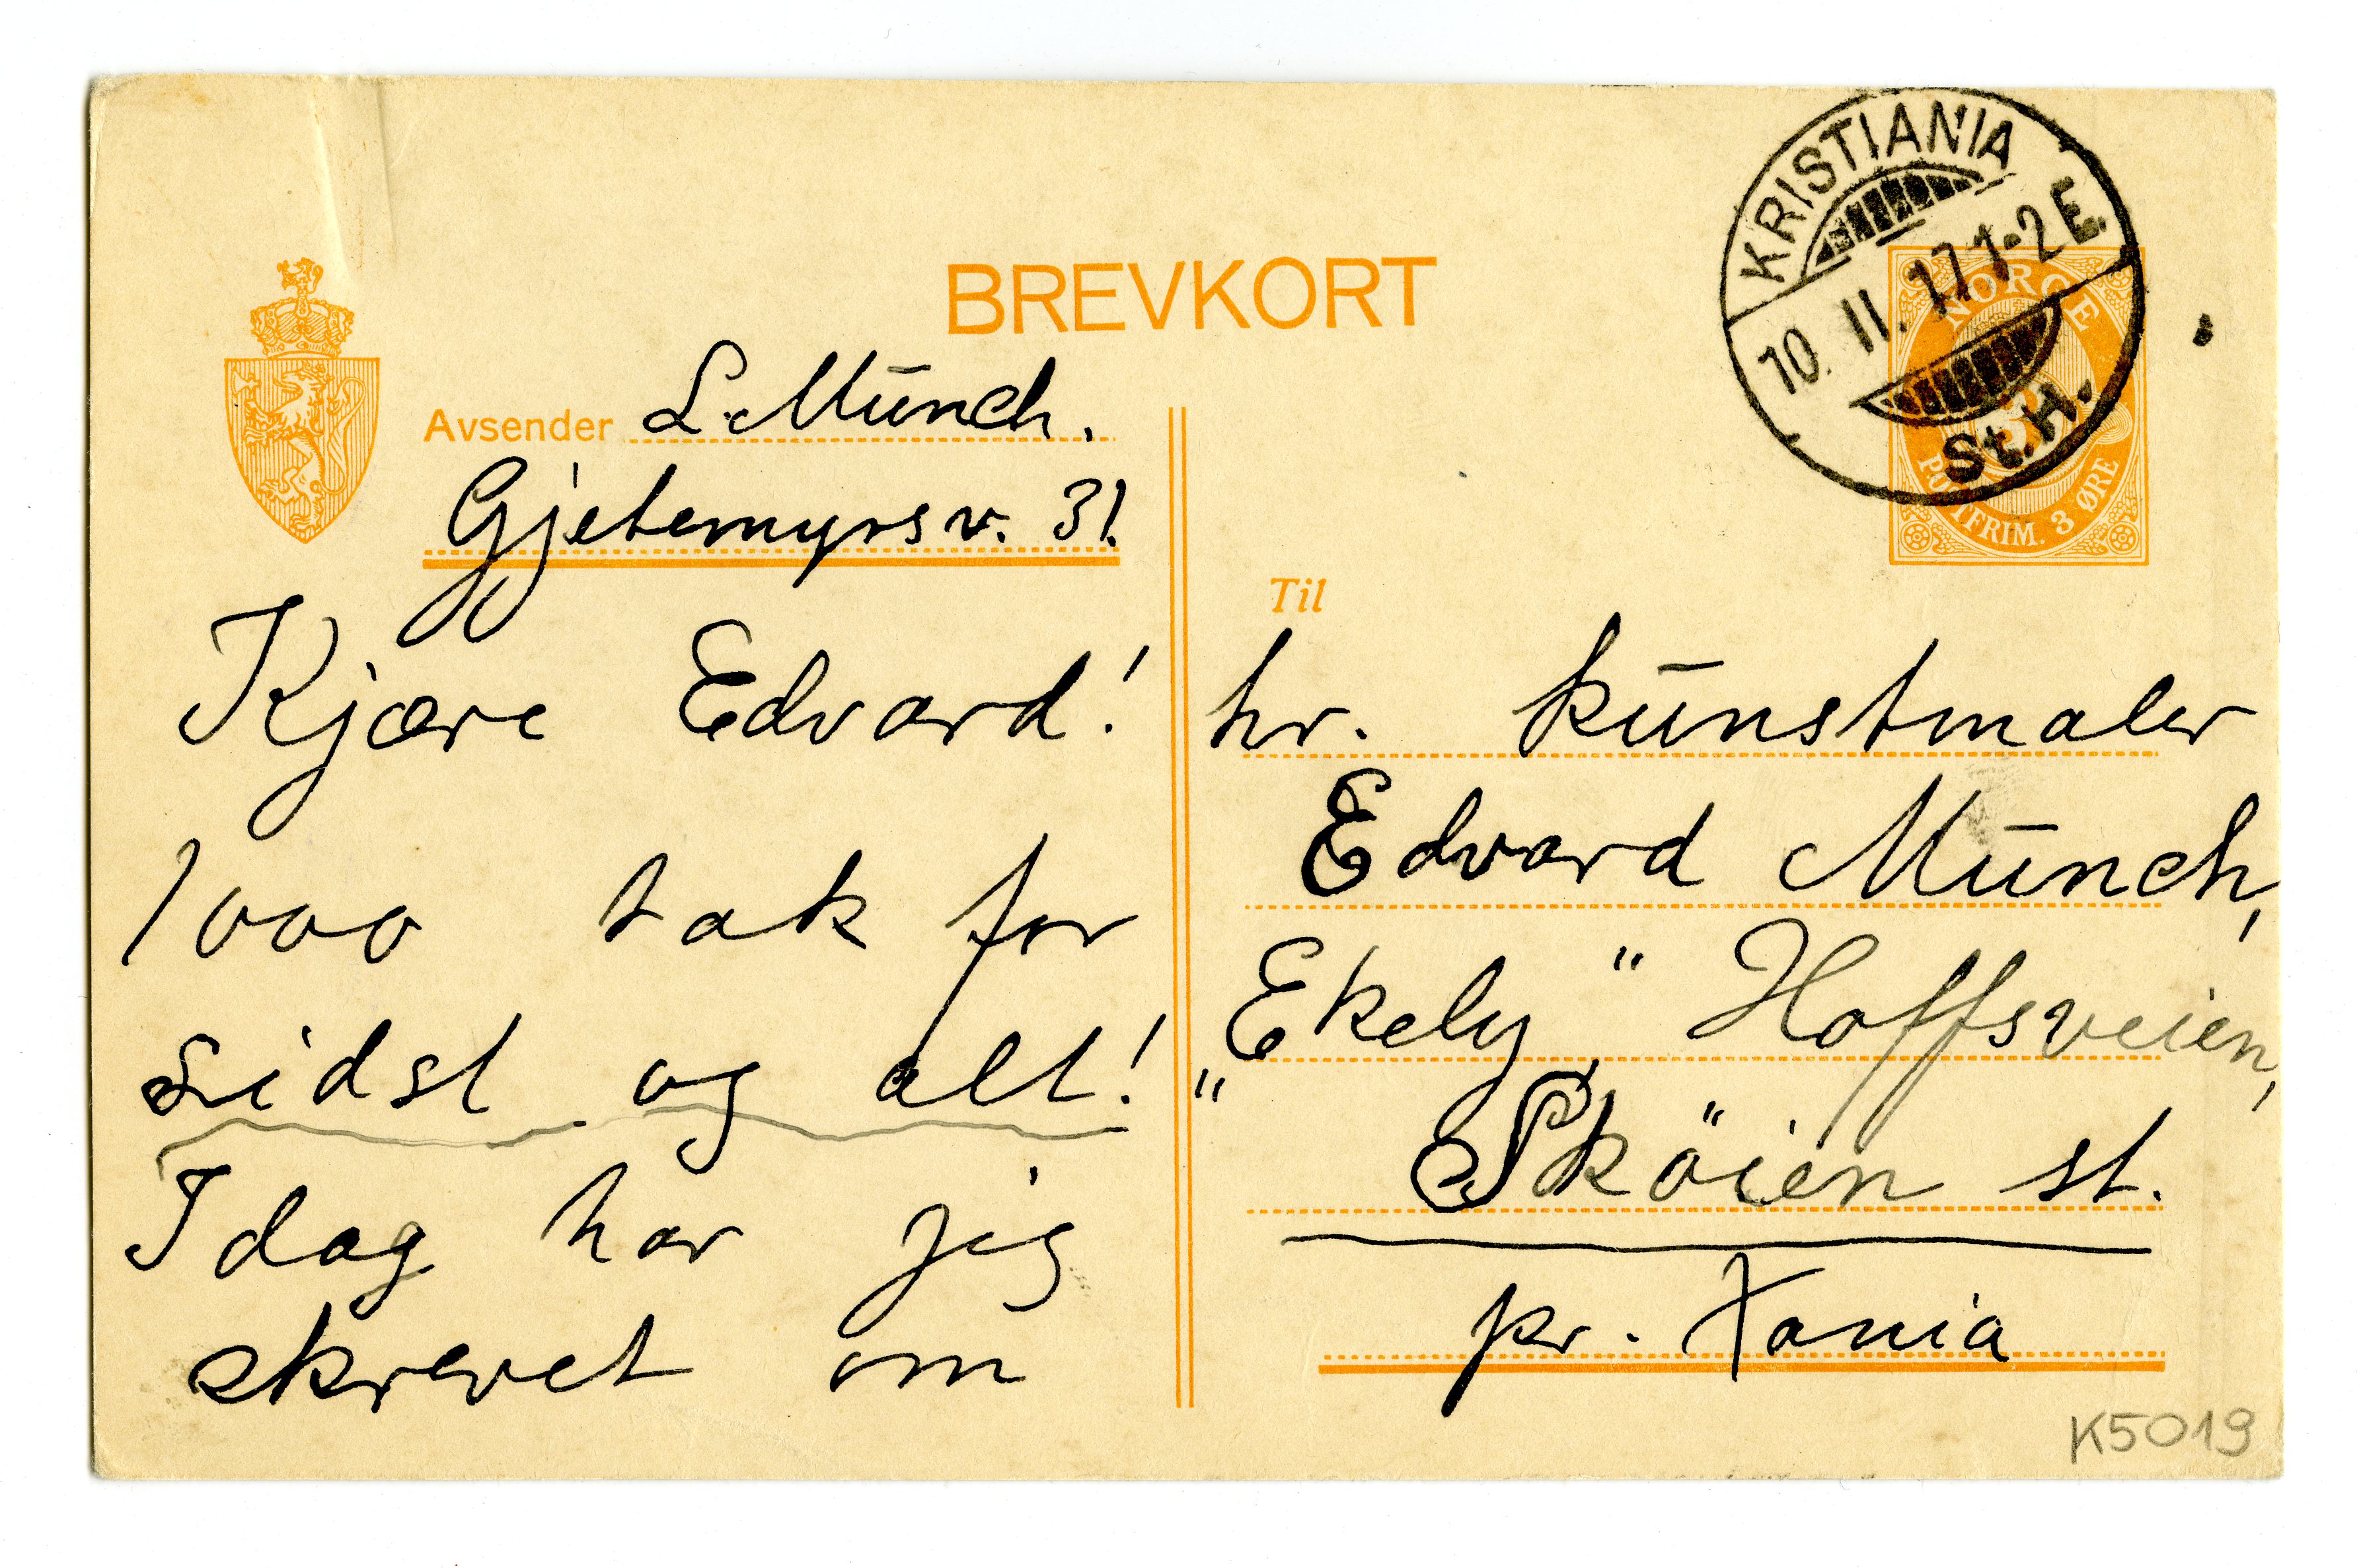 BREVKORT
KRISTIANIA
10. II. 17 1-2 E.
St. H.
NORGE
POSTFRIM. 3 ØRE
Avsender L. Münch.
Gjetemyrsv. 31.
Kjære Edvard!
1000 tak for
sidst og alt!
Idag har jeg
skrevet om
Til
hr. kūnstmaler
Edvard Mūnch,
"Ekely" Hoffsveien,
Sköien st.
pr. Xania
K5019